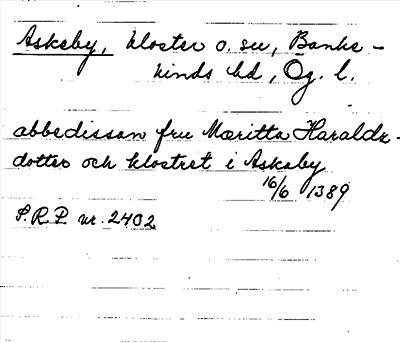 Askeby, kloster o. sn, Banke-
kinds hd, Ög. l.
abbedissan fru Mæritta Haralds-
dotter och klostret i Askeby
16/6 1389
S.R.P. nr. 2402